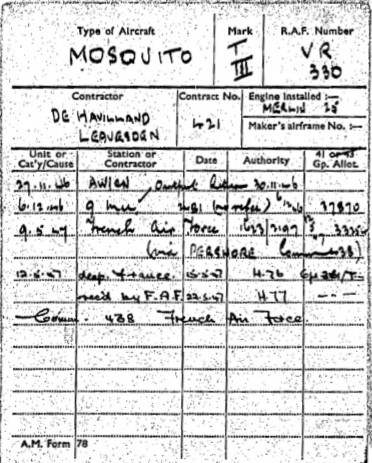 Type of Aircraft Mark R.A.F. Number
MOSQUITO T III VR 330
Contractor Contract No. Engine installed :—
DE HAVILLAND LEAVESDEN 421 MERLIN 25
Maker's airframe No. :—
Unit or Cat'y/Cause Station or Contractor Date Authority 41 or 43 Gp. Allot.
27.11.46 AW/CN 30.11.46
6.12.46 9 mu 2481 6/12/46 37870
9.5.47 French Air Force 1623/2197
(via PERSHORE
12.5.47 desp. France 15.5.47 H.76
rec'd by F.A.F. 22.5.47 H77 — — —
Comm. 438 French Air Force.
A.M. Form 78